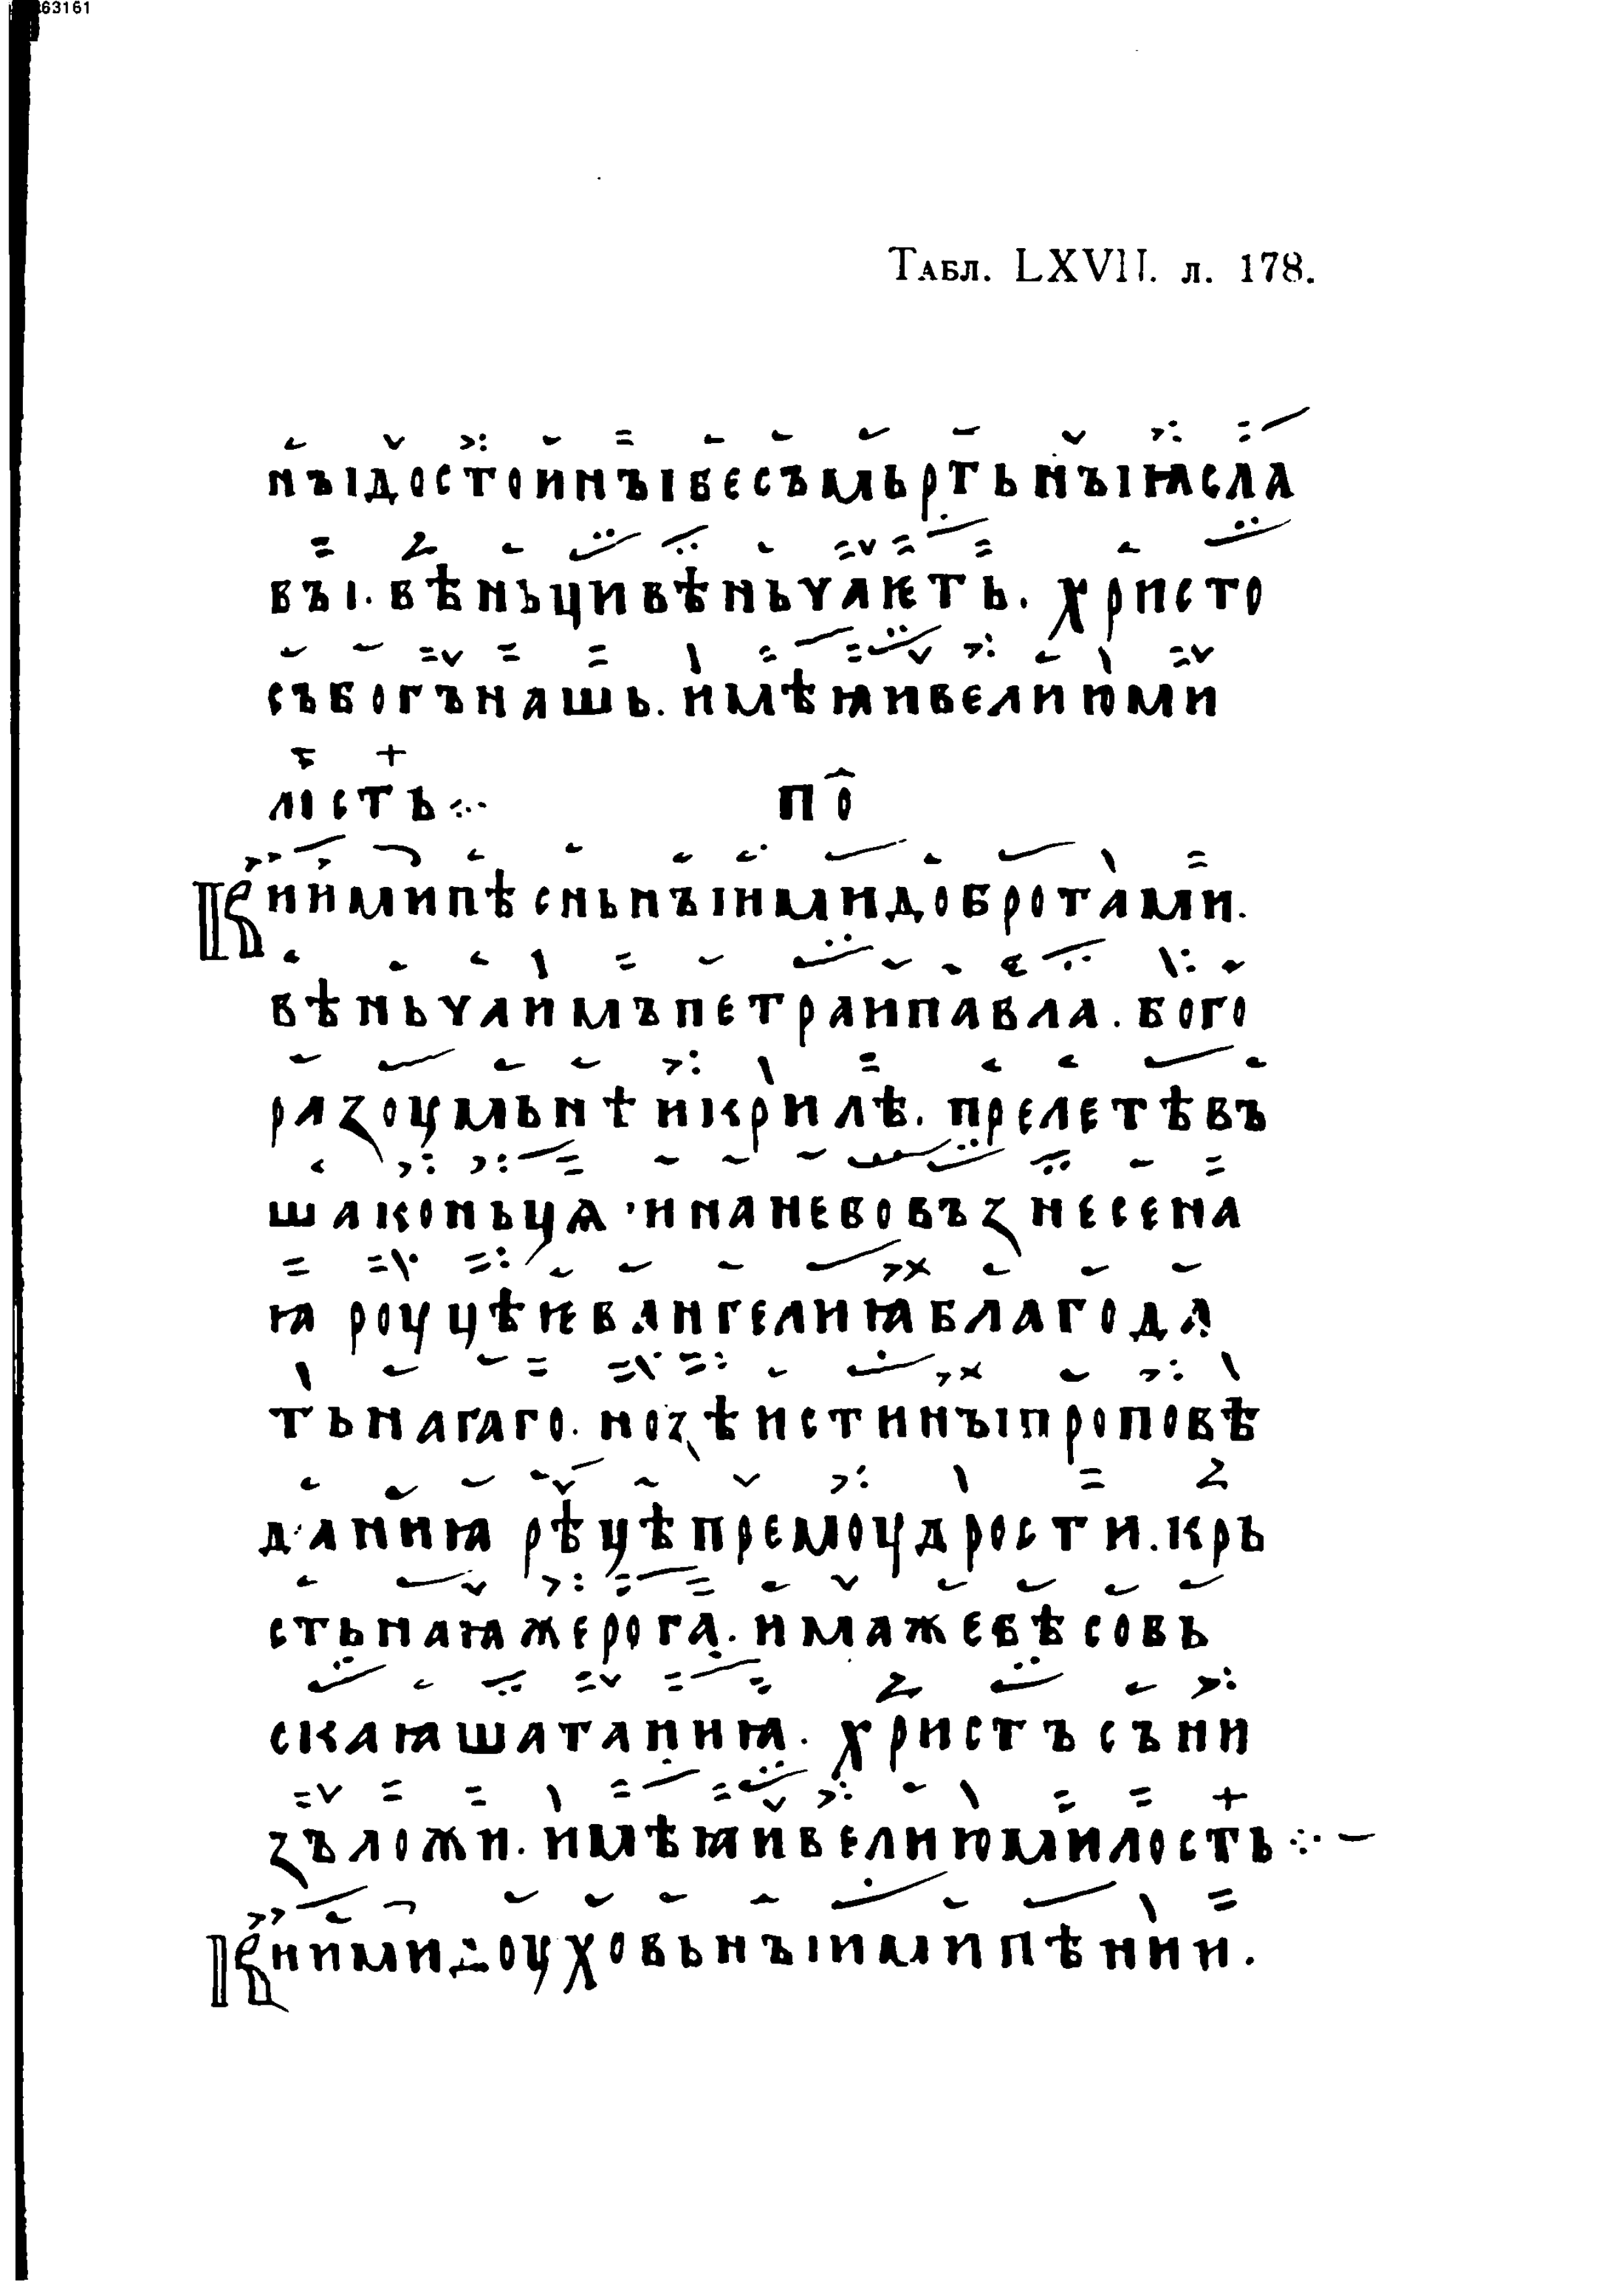 63161
Табл. LXVII. л. 178.
нъıдостоинъıбесъмьртьнъıꙗсла
въı. вѣньцивѣньчаѥть. христо
събогънашь. имѣꙗивелиюми
лость ⁘ по̑
Киимипѣсньнъıимидобротами.
вѣньчаимъпетраипавла. бого
разоумьнѣикрилѣ. прелетѣвъ
шаконьцѧ · инанебовъзнесена
ꙗ роуцѣѥвангелиꙗблагода
тьнагаго. нозѣистинъıпроповѣ
даниꙗ рѣцѣпремоудрости. крь
стьнаꙗжерога. имажебѣсовь
скаꙗшатаниꙗ. христъсъни
зъложи. имѣꙗивелиюмилость ⁘ –
Книмидоуховьнъıимипѣнии.